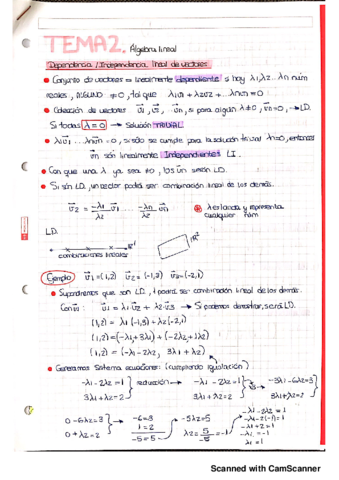 TEMA 2. Álgebra lineal
Dependencia / Independencia lineal de vectores.
Conjunto de vectores = linealmente dependiente si hay λ1, λ2... λn núm
reales, ALGUNO ≠ 0, tal que λ1v1 + λ2v2 + ...λnvn = 0
Colección de vectores v1, v2, vn, si para algún λ≠0, vn=0, → LD.
Si todas λ=0 → Solución TRIVIAL
λ1v1 ... λnvn = 0, si sólo se cumple para la solución trivial λ=0, entonces
vn son linealmente Independientes LI.
Con que una λ ya sea ≠0, los vn serán LD.
Si sin LD, un vector podrá ser combinación lineal de los demás.
v2 = -λ1/λ2 v1 ... -λn/λ2 vn
λ es landa y representa
cualquier núm
LD.
R1
R2
combinaciones lineales
Ejemplo v1=(1,2) v2=(-1,3) v3=(-2,1)
Supondremos que son LD, 1 podrá ser combinación lineal de los demás.
v1 = λ1v2 + λ2v3 → Si podemos demostrar, será LD.
(1,2) = λ1(-1,3) + λ2(-2,1)
(1,2) = (-λ1+3λ1) + (-2λ2+1λ2)
(1,2) = (-λ1-2λ2, 3λ1+λ2)
Generamos Sistema ecuaciones: (cumpliendo igualación)
-λ1-2λ2=1 reducción → -λ1-2λ2=1 ·3 -3λ1-6λ2=3
3λ1+λ2=2 3λ1+λ2=2 3λ1+λ2=2
0-6λ2=3 -6=3 -5λ2=5 -λ1-2λ2=1
0+λ2=2 1=2 λ2=5/-5=-1 -λ1-2(-1)=1
-5=5 -λ1+2=1
λ1=1
Scanned with CamScanner